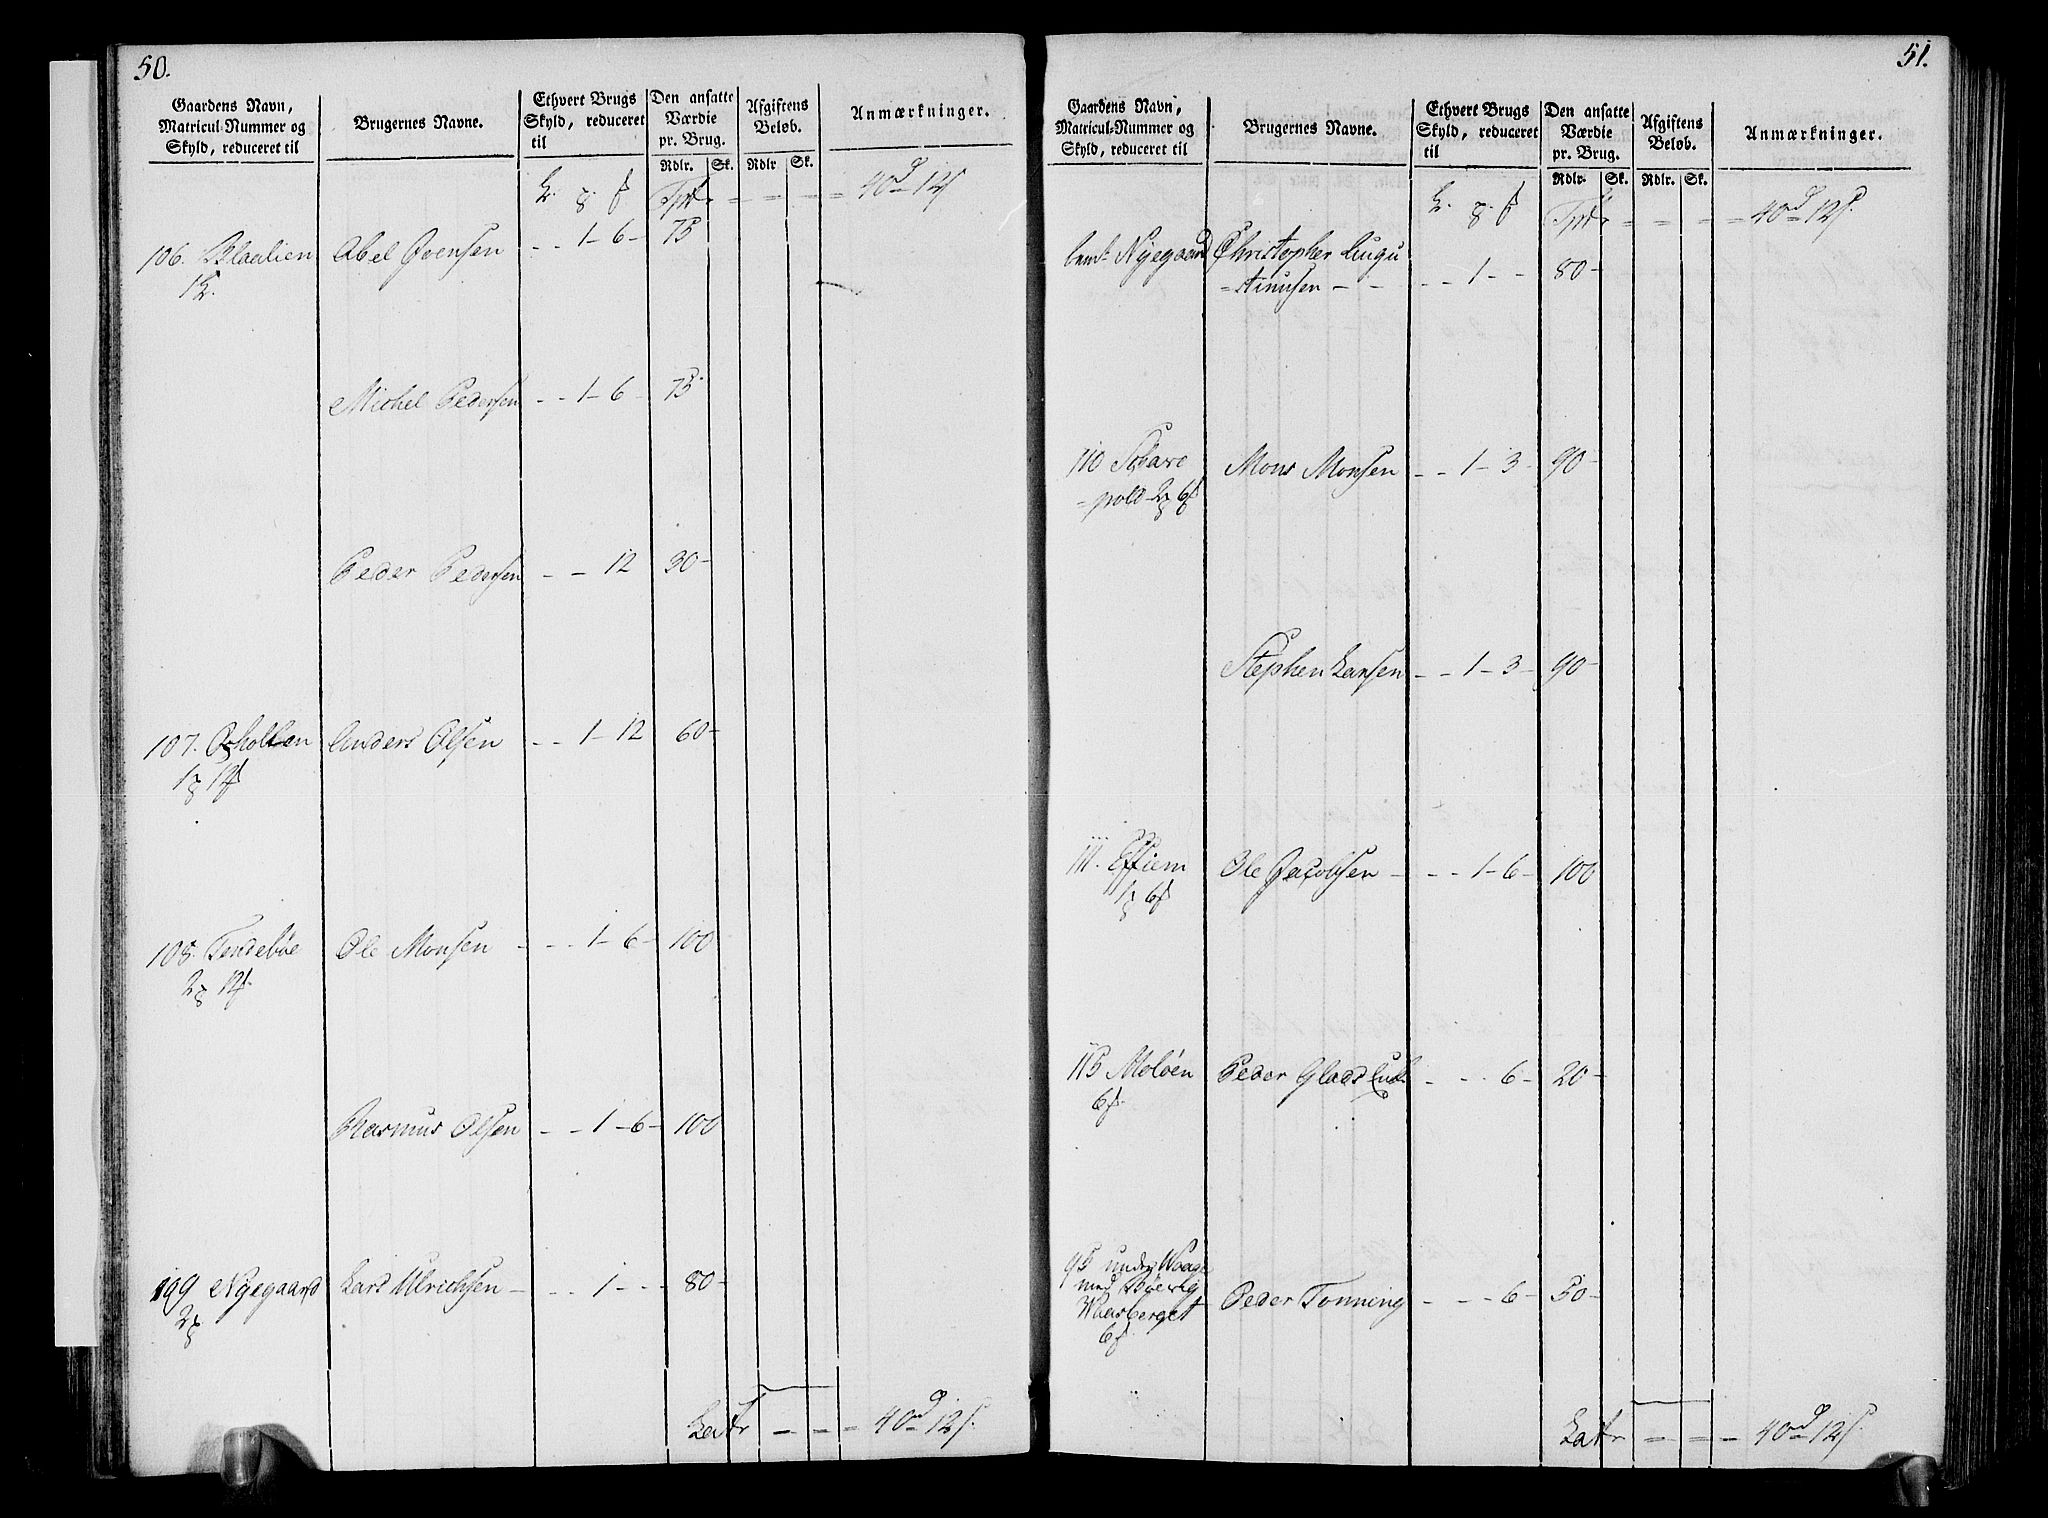 50.
Gaardens Navn, Matricul-Nummer og Skyld, reduceret til
Brugernes Navne.
Ethvert Brugs Skyld, reduceret til
Den ansatte Værdie pr. Brug.
Afgiftens Beløb.
Anmærkninger.
Rdlr. Sk. Rdlr Sk.
Tptr 40 12
106. Blaalien Abel Joensen 1-6- 75
Michel Pedersen 1-6- 75
Peder Pedersen 12 30-
107. Anders Olsen 1-12 60-
1 12
108. Tendebøe Ole Monsen 1-6- 100
2 12
Rasmus Olsen 1-6- 100
109 Nyegaard Lars Ulrichsen 1 80-
2
Latr 40 12
51.
Gaardens Navn, Matricul-Nummer og Skyld, reduceret til
Brugernes Navne.
Ethvert Brugs Skyld, reduceret til
Den ansatte Værdie pr. Brug.
Afgiftens Beløb.
Anmærkninger.
Rdlr. Sk. Rdlr. Sk.
Tptr 40 12
Nyegaard Christopher Augu
=stinusen 1 80-
110 Mons Monsen 1-3- 90-
=pold 2 6
Stephen Larsen 1-3- 90-
111. Ole Jacobsen 1-6- 100
1 6
115 Moløen Peder 6- 20-
6
95 under Waage
med
Waasberget Peder Tonning 6- 50-
6
Latr 40 12